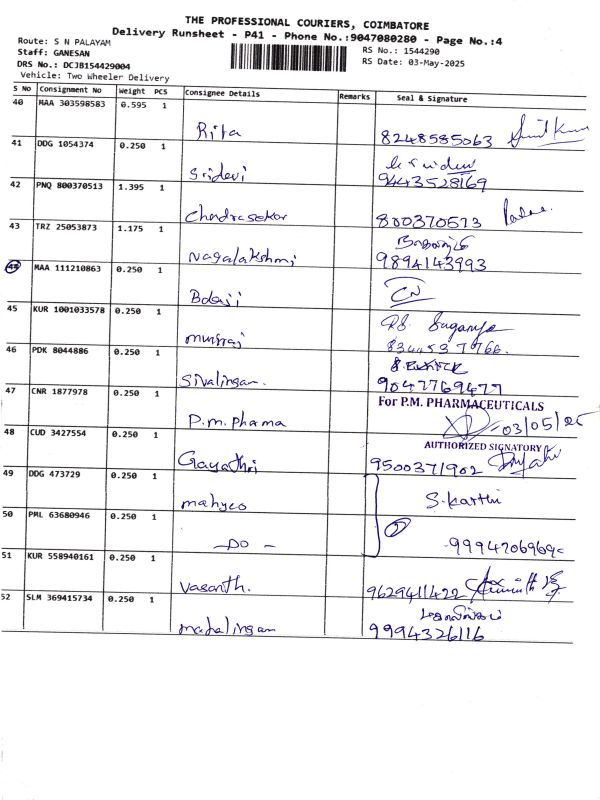 THE PROFESSIONAL COURIERS, COIMBATORE
Delivery Runsheet - P41 - Phone No.:9047080280 - Page No.:4
Route: S N PALAYAM
Staff: GANESAN
DRS No.: DCJB154429004
Vehicle: Two Wheeler Delivery
RS No.: 1544290
RS Date: 03-May-2025
S No Consignment No Weight PCS Consignee Details Remarks Seal & Signature
40 MAA 303598583 0.595 1
Rita 8248585063
41 DDG 1054374 0.250 1
Sridevi 9443528169
42 PNQ 800370513 1.395 1
Chandrasekar 800370513
43 TRZ 25053873 1.175 1
Nagalakshmi 9894143993
44 MAA 111210863 0.250 1
Balaji
45 KUR 1001033578 0.250 1
RS. Suganya
muniraj 8344537766.
46 PDK 8044886 0.250 1
Sivalingam. 9047769477
47 CNR 1877978 0.250 1
For P.M. PHARMACEUTICALS
P.m. Phama 03/05/25
AUTHORIZED SIGNATORY
48 CUD 3427554 0.250 1
Gayathri 9500371902
49 DDG 473729 0.250 1
mahyco S. Karthi
50 PML 63680946 0.250 1
2
-DO- -9994206969-
51 KUR 558940161 0.250 1
Vasanth. 9629411422
52 SLM 369415734 0.250 1
மகாலிங்கம்
mahalingam 9994326116